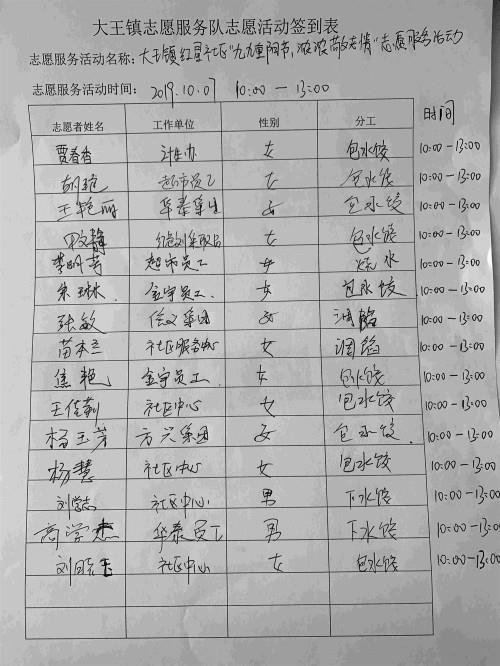 大王镇志愿服务队志愿活动签到表
志愿服务活动名称：大王镇红星社区"九九重阳节，浓浓敬老情"志愿服务活动
志愿服务活动时间：2019.10.07 10:00 — 13:00
志愿者姓名 工作单位 性别 分工 时间
贾春香 计生办 女 包水饺 10:00-13:00
胡艳 超市员工 女 包水饺 10:00-13:00
王艳丽 华泰集团 女 包水饺 10:00-13:00
女 包水饺 10:00-13:00
李明芳 超市员工 女 烧水 10:00-13:00
朱琳琳 金宇员工 女 包水饺 10:00-13:00
张敏 信义集团 女 调馅 10:00-13:00
苗本兰 社区服务中心 女 调馅 10:00-13:00
焦艳 金宇员工 女 包水饺 10:00-13:00
王佳莉 社区中心 女 包水饺 10:00-13:00
杨玉芳 方兴集团 女 包水饺 10:00-13:00
杨慧 社区中心 女 包水饺 10:00-13:00
刘学志 社区中心 男 下水饺 10:00-13:00
商学杰 华泰员工 男 下水饺 10:00-13:00
刘 玉 社区中心 女 包水饺 10:00-13:00